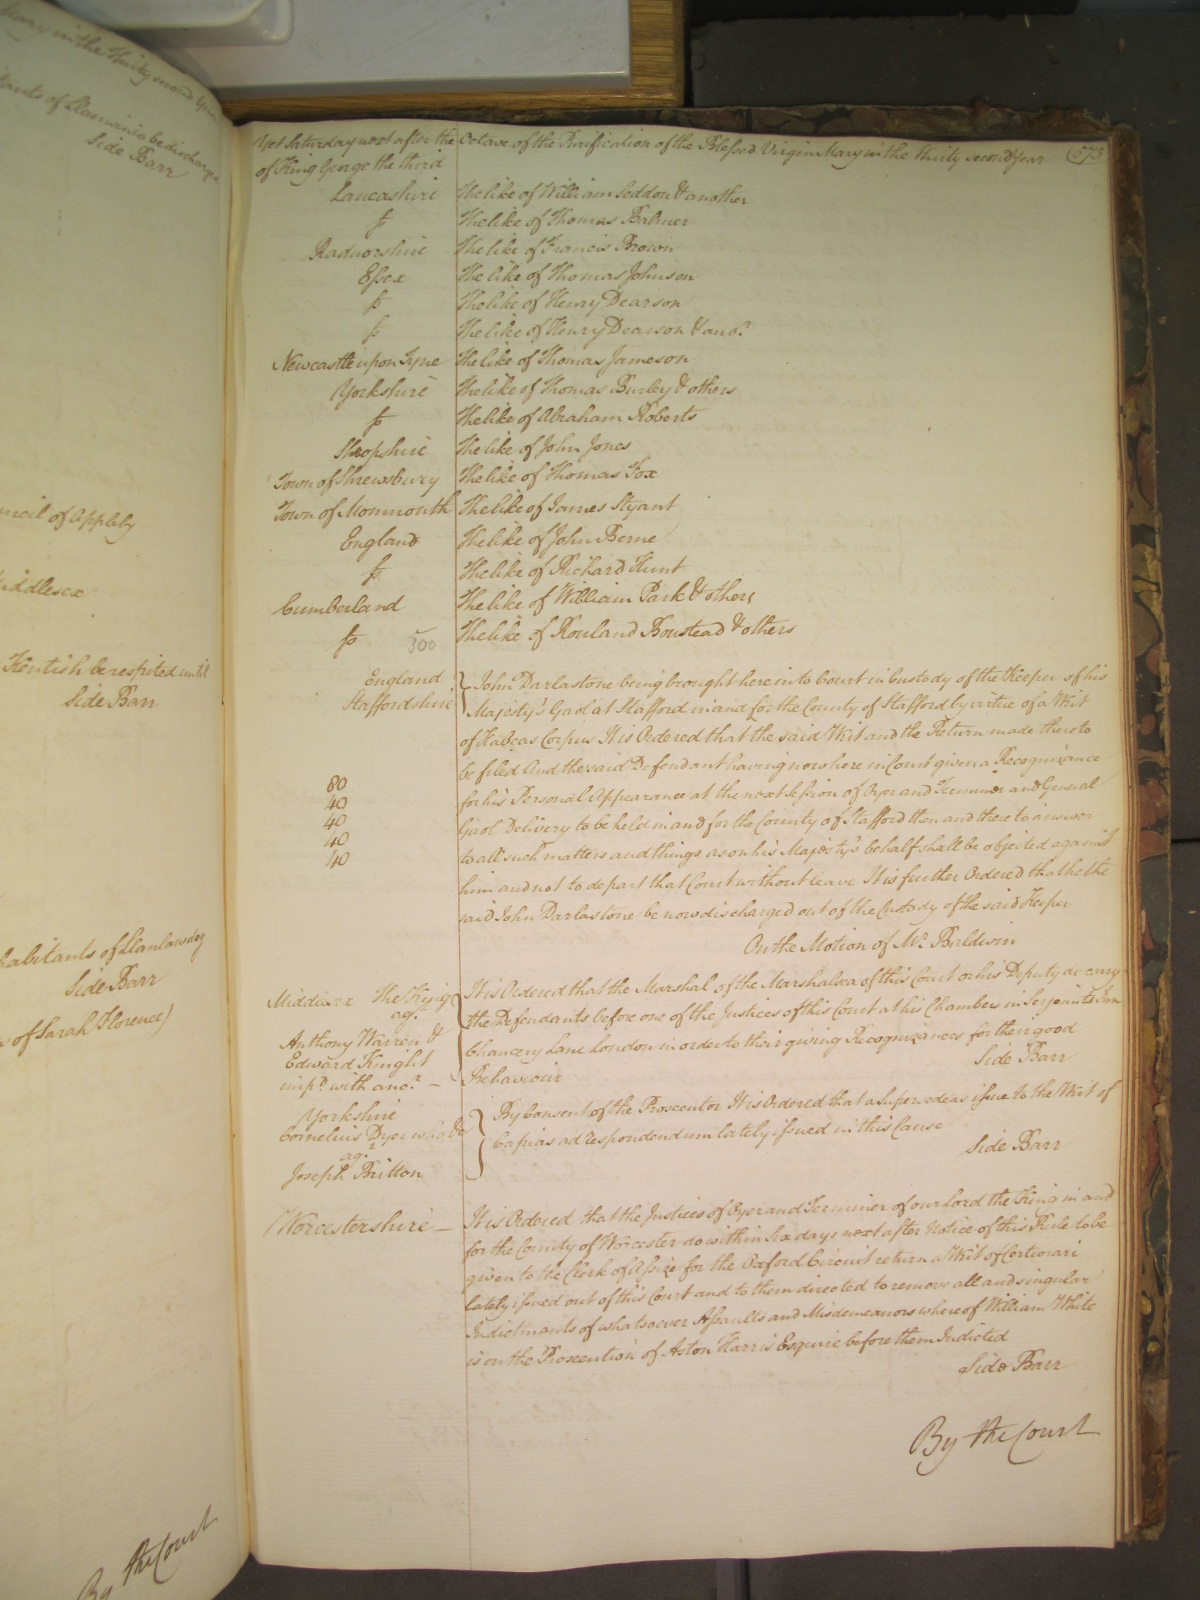 Mary in the Thirty second Year
itants of Llanwinio be discharged
Side Barr
uncil of Appleby
Middlesex
Kentish be respited until
Side Barr
habitants of Llanlawdog
Side Barr
of Sarah Florence)
By the Court
Yet Saturday next after the Octave of the Purification of the Blessed Virgin Mary in the thirty second Year
573
of King George the third
Lancashire The like of William Seddon & another
fs The like of Thomas Balmer
Radnorshire The like of Francis Brown
Essex The like of Thomas Johnson
fs The like of Henry Dearson
fs The like of Henry Dearson & ano.r
Newcastle upon Tyne The like of Thomas Jameson
Yorkshire The like of Thomas Burley & others
fs The like of Abraham Roberts
Shropshire The like of John Jones
Town of Shrewsbury The like of Thomas Fox
Town of Monmouth The like of James Styant
England The like of John Berne
fs The like of Richard Hunt
Cumberland The like of William Park & others
fs 300 The like of Rowland Boustead & others
England
Staffordshire
John Darlastone being brought here into Court in Custody of the Keeper of his
Majesty's Gaol at Stafford in and for the County of Stafford by virtue of a Writ
of Habeas Corpus It is Ordered that the said Writ and the Return made thereto
be filed And the said Defendant having now here in Court given a Recognizance
80
40
40
40
40
for his Personal Appearance at the next Session of Oyer and Terminer and General
Gaol Delivery to be held in and for the County of Stafford then and there to answer
to all such matters and things as on his Majesty's behalf shall be objected against
him and not to depart that Court without leave It is further Ordered that he the
said John Darlastone be now discharged out of the Custody of the said Keeper
On the Motion of Mr. Baldwin
Middlesex The King
ag.t
Anthony Warren &
Edward Knight
imp.d with ano.r —
It is Ordered that the Marshal of the Marshalsea of this Court or his Deputy do carry
the Defendants before one of the Justices of this Court at his Chambers in Serjeants Inn
Chancery Lane London in order to their giving Recognizances for their good
Behaviour
Side Barr
Yorkshire
Cornelius Dyer who &c
ag.t
Joseph Britton
By Consent of the Prosecutor It is Ordered that a Supersedeas issue to the Writ of
Capias ad respondendum lately issued in this Cause
Side Barr
Worcestershire — It is Ordered that the Justices of Oyer and Terminer of our Lord the King in and
for the County of Worcester do within Six days next after Notice of this Rule to be
given to the Clerk of Assize for the Oxford Circuit return a Writ of Certiorari
lately issued out of this Court and to them directed to remove all and singular
Indictments of whatsoever Assaults and Misdemeanors whereof William White
is on the Prosecution of Aston Harris Esquire before them Indicted
Side Barr
By the Court